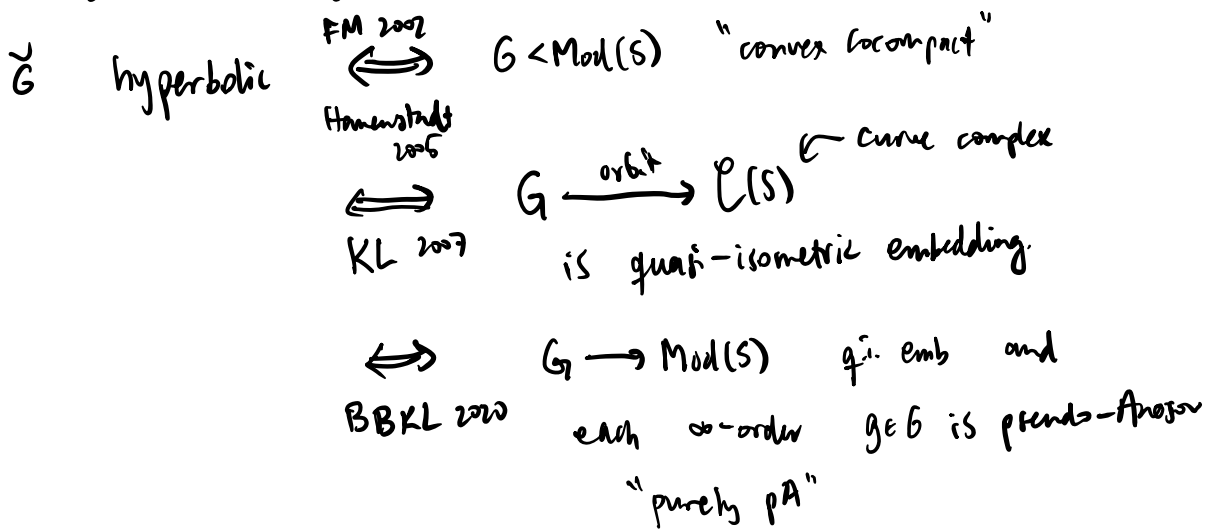 FM 2002
Ğ hyperbolic ⟺ G < Mod(S) "convex cocompact"
Hamenstadt 2005
⟺ G —orbit→ C(S) ← curve complex
KL 2007 is quasi-isometric embedding.
⟺ G → Mod(S) q.i. emb and
BBKL 2020 each ∞-order g∈G is pseudo-Anosov
"purely pA"